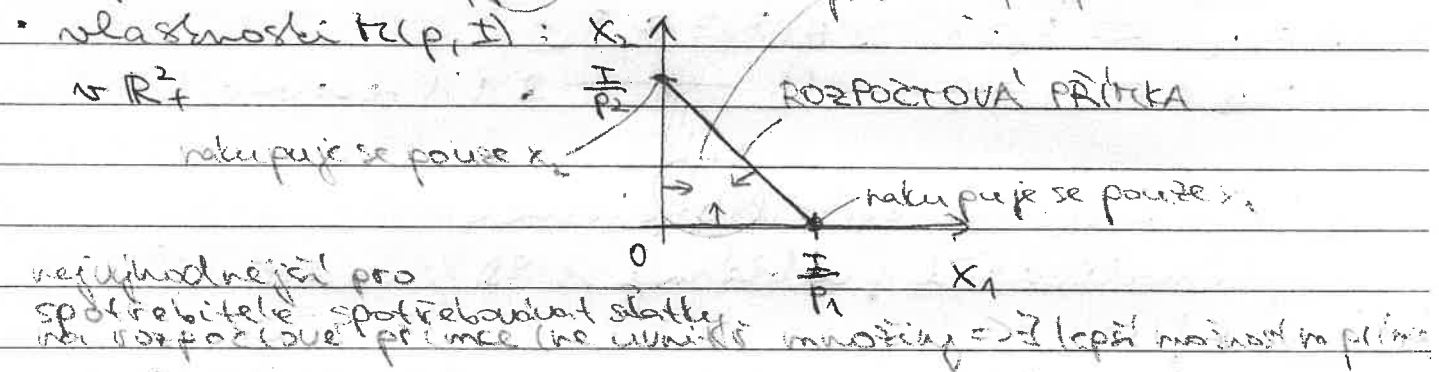 • vlastnosti M(p, I) : X₂
v ℝ²₊ I/p₂ ROZPOČTOVÁ PŘÍMKA
nakupuje se pouze x₂
nakupuje se pouze x₁
0 I/p₁ X₁
nejvýhodnější pro
spotřebitele spotřebovávat statky
na rozpočtové přímce (ne uvnitř množiny => ∃ lepší možnost na